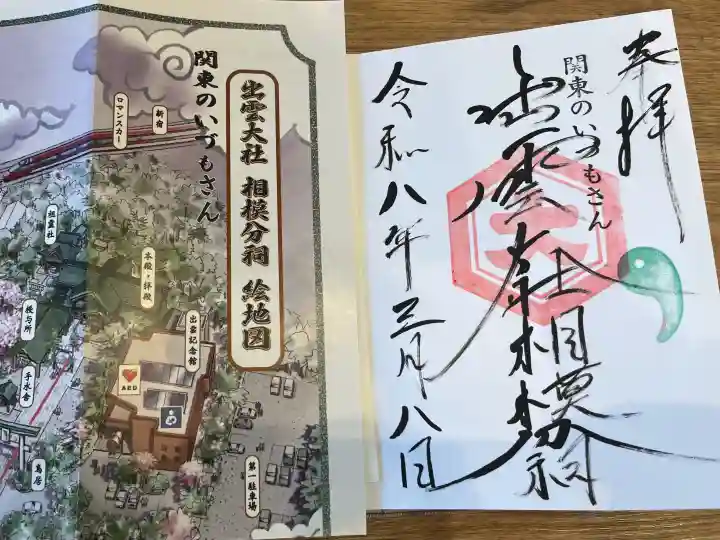 関東のいづもさん
出雲大社 相模分祠 絵地図
新宿
ロマンスカー
祖霊社
本殿・拝殿
授与所
出雲記念館
手水舎
AED
鳥居
第一駐車場
奉拝
関東のいづもさん
出雲大社相模分祠
令和八年三月八日